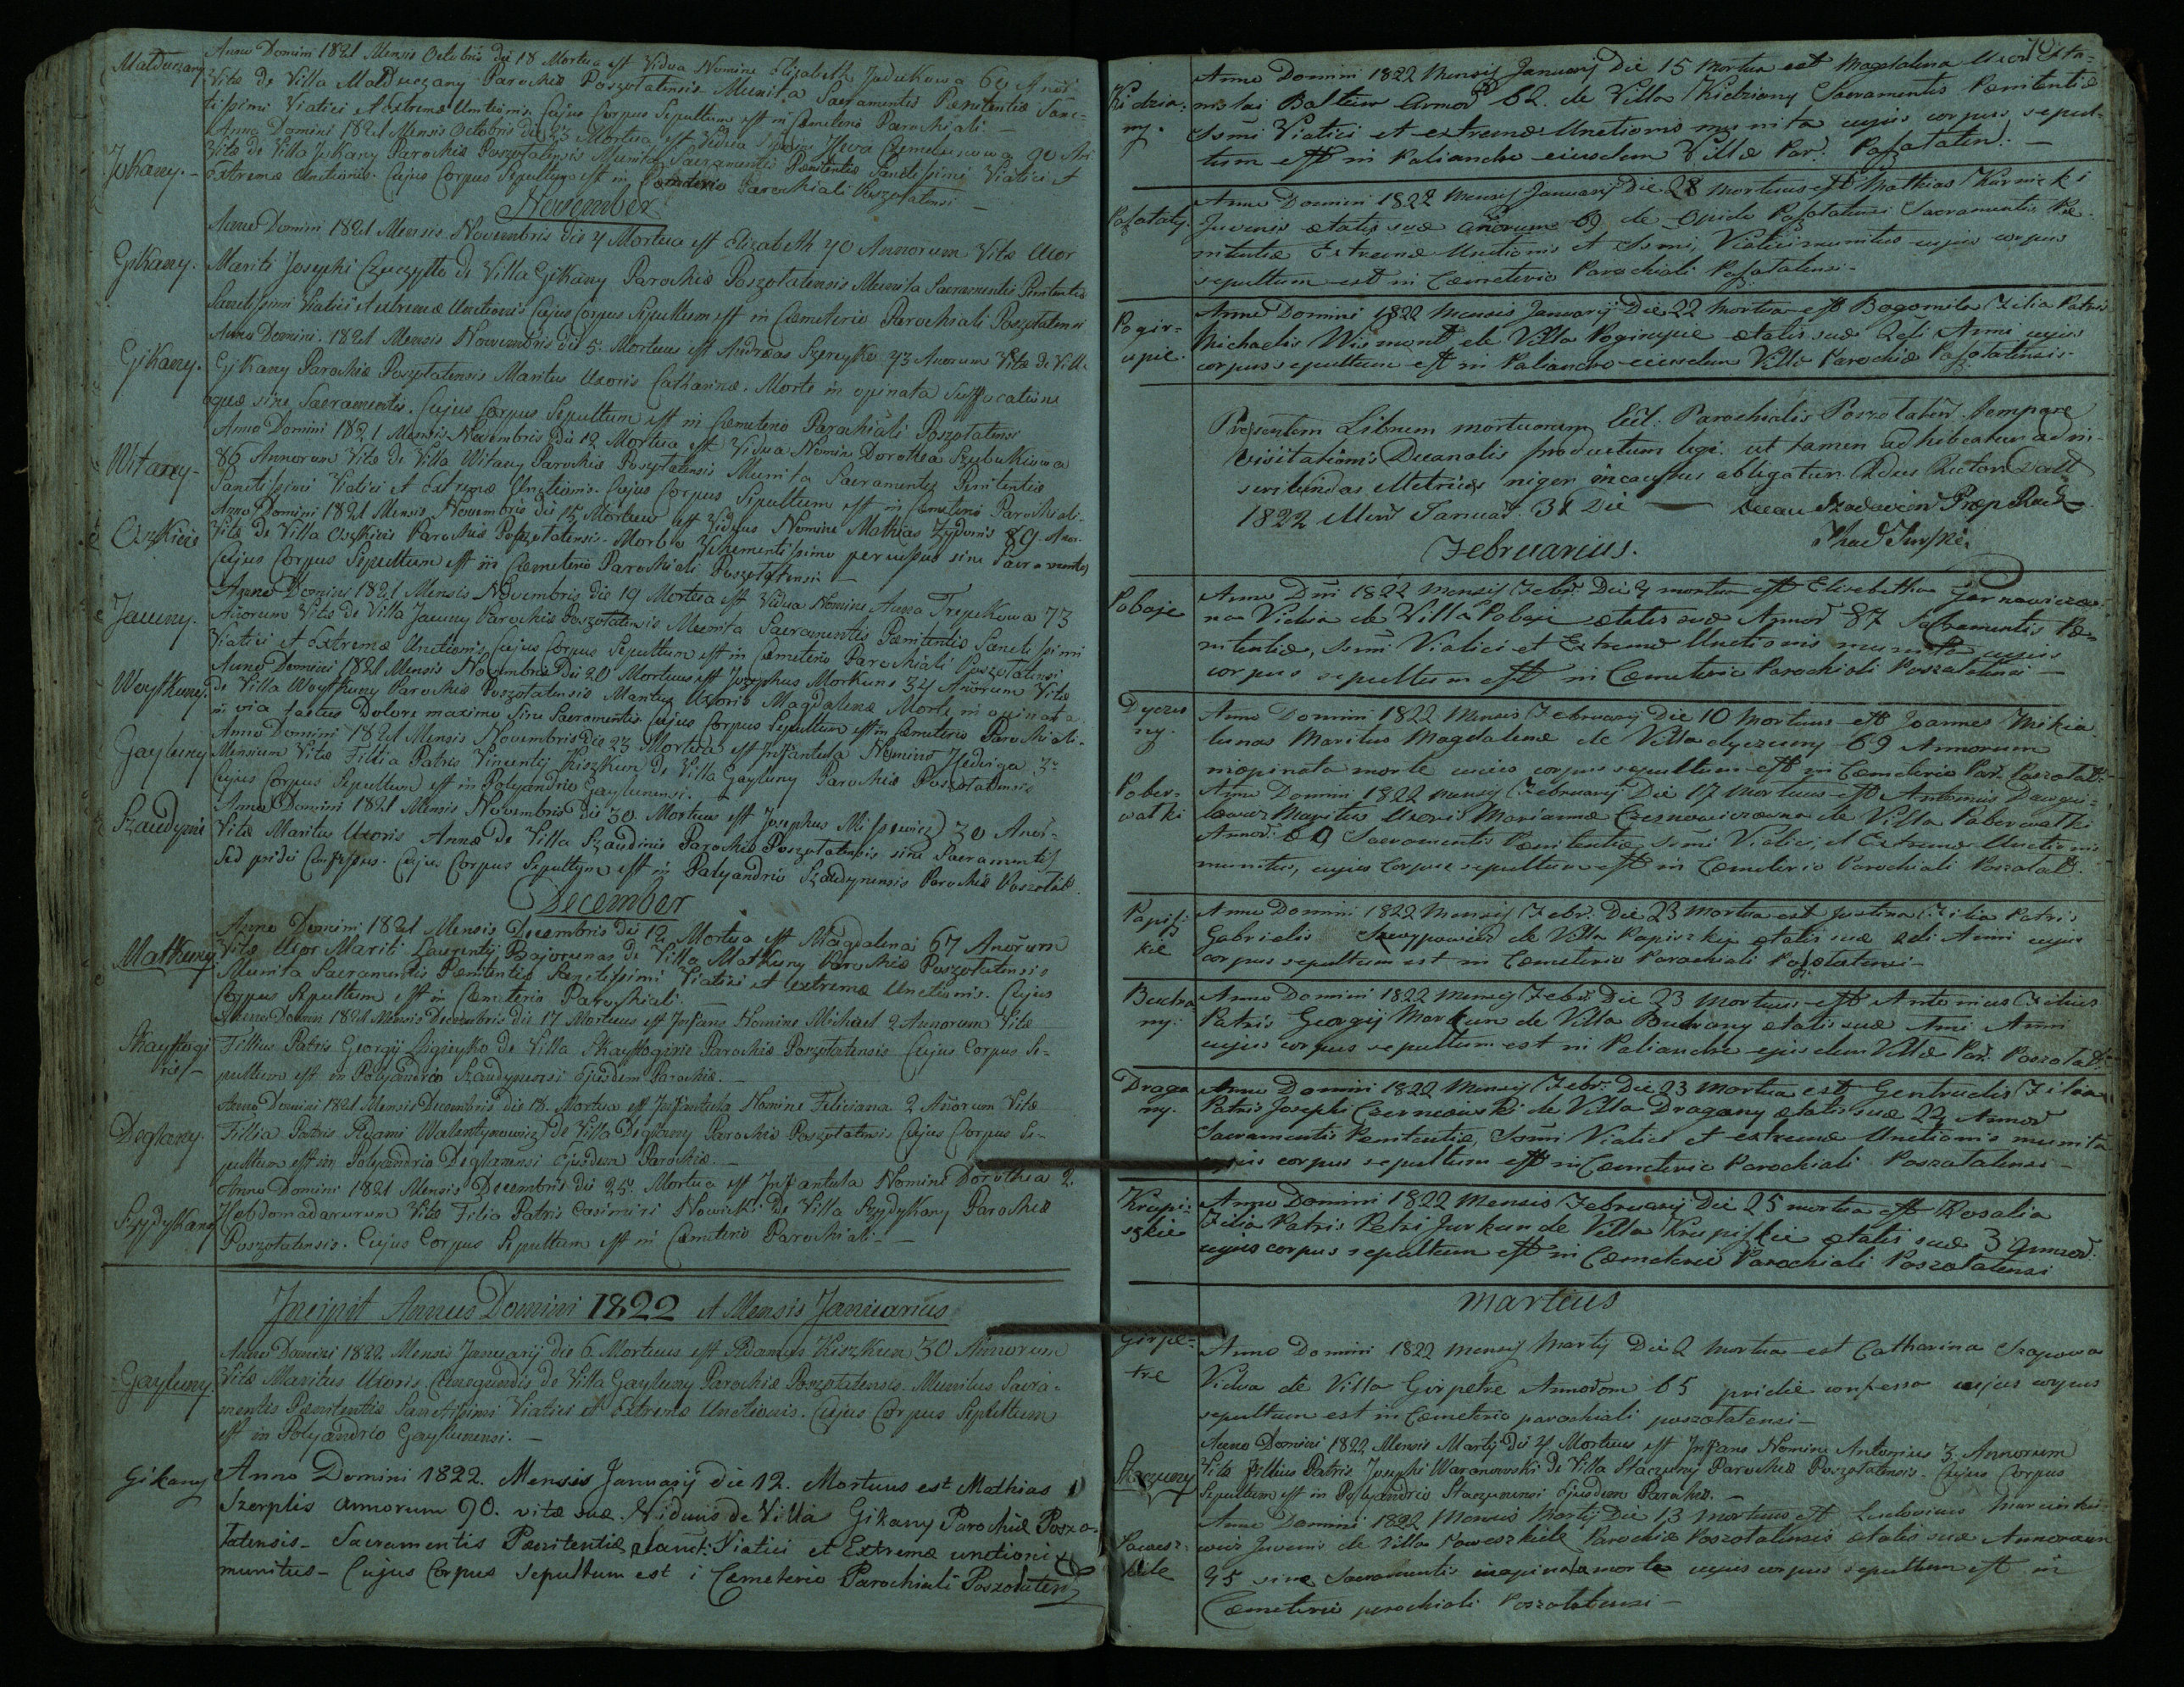 Malduczany
Anno Domini 1821 Mensis Octobris die 18 Mortua est Vidua Nomine Elizabeth Judukowa 60 Anoŕ
Vitæ de Villa Malduczany Parochiæ Poszołatensis Munita Sacramentis Pænitentiæ Sanc-
tissimi Viatici et Extremæ Unctionis. Cujus Corpus Sepultum est in Cæmeterio Parochiali. –
Jokany. –
Anno Domini 1821 Mensis Octobris die 23 Mortua est Vidua 90
Vitæ de Villa Jokany Parochiæ Poszołatensis Munita Sacramentis Pænitentiæ Sanctissimi Viatici et
extremæ Unctionis. Cujus Corpus Sepultum est in Cæmeterio Parochiali Poszołatensi –
November
Gikany.
Anno Domini 1821 Mensis Novembris die 4 Mortua est Elizabeth 70 Annorum Vitæ Uxor
Mariti Josephi Czuczyłło de Villa Gikany Parochiæ Poszołatensis Munita Sacramentis Penitentiæ
Sanctissimi Viatici et extremæ Unctionis Cujus Corpus Sepultum est in Cæmeterio Parochiali Poszołatensi
Gikany.
Anno Domini 1821 Mensis Novembris die 5. Mortuus est Andræas Szereyko 73 Anorum Vitæ de Villa
Gikany Parochiæ Poszołatensis Maritus Uxoris Catharinæ. Morte in opinata Suffocatione
aquæ sine Sacramentis. Cujus Corpus Sepultum est in Cæmeterio Parochiali Poszołatensi
Witany –
Anno Domini 1821 Mensis Novembris die 12 Mortua est Vidua Nomine Dorothea Szubutkiowa
86 Annorum Vitæ de Villa Witany Parochiæ Poszołatensis Munita Sacramentis Penitentiæ
Sanctissimi Viatici et extremæ Unctionis. Cujus Corpus Sepultum est in Cæmeterio Parochiali.
Oszkicie
Anno Domini 1821 Mensis Novembris die 15 Mortuus est Viduus Nomine Mathias Zydonis 89. Anoŕ.
Vitæ de Villa Oszkicie Parochiæ Poszołatensis. Morbo Vehementissimo percussus sine Sacramentis
Cujus Corpus Sepultum est in Cæmeterio Parochiali Poszołatensi –
Jauuny.
Anno Domini 1821 Mensis Novembris die 19 Mortua est Vidua Nomine Anna Trepukowa 73
Anorum Vitæ de Villa Jauuny Parochiæ Poszołatensis Munita Sacramentis Pænitentiæ Sanctissimi
Viatici et Extremæ Unctionis. Cujus Corpus Sepultum est in Cæmeterio Parochiali Poszołatensi
Woytkuny.
Anno Domini 1821 Mensis Novembris Die 20 Mortuus est Josephus Morkuns 34 Anorum Vitæ
de Villa Woytkuny Parochiæ Poszołatensis Maritus Uxoris Magdalenæ Morte in opinata
in via factus Dolore maximo Sine Sacramentis. Cujus Corpus Sepultum est in Cæmeterio Parochiali.
Gayluny
Anno Domini 1821 Mensis Novembris Die 23 Mortua est Infantula Nomine Hedviga 3.
Mensium Vitæ Fillia Patris Vincentij Kiszkun de Villa Gayluny Parochiæ Poszołatensis
Cujus Corpus Sepultum est in Polyandrio Gaylunensi. –
Szaudynie
Anno Domini 1821 Mensis Novembris die 30. Mortuus est Josephus Missewicz 30 Anoŕ-
Vitæ Maritus Uxoris Annæ de Villa Szaudinie Parochiæ Poszołatensis sine Sacramentis
Sed pridie Confessus. Cujus Corpus Sepultum est in Polyandrio Szaudynensis Parochiæ Poszołat.
December
Matkuny
Anno Domini 1821 Mensis Decembris die 12 Mortua est Magdalena 67 Anorum
Vitæ Uxor Mariti Laurentij Bajorunas de Villa Matkuny Parochiæ Poszołatensis
Munita Sacramentis Pænitentiæ Sanctissimi Viatici et extremæ Unctionis. Cujus
Corpus Sepultum est in Cæmeterio Parochiali. –
Skaystogi
ris –
Anno Domini 1821 Mensis Decembris die 17 Mortuus est Infans Nomine Michael 2 Annorum Vitæ
Fillius Patris Georgij de Villa Skaystogirie Parochiæ Poszołatensis Cujus Corpus Se-
pultum est in Polyandrio Szaudynensi ejusdem Parochiæ. –
Deglany.
Anno Domini 1821 Mensis Decembris die 18. Mortua est Infantula Nomine Feliciana 2 Anorum Vitæ
Fillia Patris Adami Walentynowicz de Villa Deglany Parochiæ Poszołatensis Cujus Corpus Se-
pultum est in Polyandrio Deglanensi ejusdem Parochiæ. –
Szydykany
Anno Domini 1821 Mensis Decembris die 25. Mortua est Infantula Nomine Dorothea 2.
Hebdomadarum Vitæ Filia Patris Casimiri Nowicki De Villa Szydykany Parochiæ
Poszołatensis. Cujus Corpus Sepultum est in Cæmeterio Parochiali. –
Incipit Annus Domini 1822 et Mensis Januarius
Gayluny.
Anno Domini 1822 Mensis Januarij die 6 Mortuus est Adamus Kiszkun 30 Annorum
Vitæ Maritus Uxoris Cunegundis de Villa Gayluny Parochiæ Poszołatensis. Munitus Sacra-
mentis Pænitentiæ Sanctissimi Viatici et Extremæ Unctionis. Cujus Corpus Sepultum
est in Polyandrio Gaylunensi. –
Gikany
Anno Domini 1822. Mensis Januarij die 12. Mortuus est Mathias
Szerplis annorum 90. vitæ suæ. Viduus de Villa Gikany Parochiæ Poszo-
łatensis – Sacramentis Pænitentiæ, Sanct: Viatici et Extremæ unctionis
munitus – Cujus Corpus Sepultum est i Cæmeterio Parochiali Poszołaten
70
Kidzia-
ny.
Anno Domini 1822 Mensij Januarij Die 15 mortua est Magdalena Uxor Sta-
nislai Baltur Annoŕ 62. de Villa Kidziany Sacramentis Pænitentiæ
Ssmi Viatici et extremæ Unctionis munita cujus corpus sepul-
tum est in Paliandro eiusdem Villæ Par: Poszołaten: –
Poszołaty.
Anno Domini 1822 Mensij Januarij Die 28 mortuus est Mathias Kurnicki
Juvenis ætatis suæ anorum 69. de Opido Poszołatensi Sacramentis Pæ-
nitentiæ Extremæ Unctionis et Ssmi Viatici munitus cujus corpus
sepultum est in Cæmeterio Parochiali Poszołatensi –
Pogir-
upie.
Anno Domini 1822 Mensis Januarij Die 22 mortua est Bogomila Filia Patris
Michaelis Wismont de Villa Pogirupie ætatis suæ 2di Anni cujus
corpus sepultum est in Paliandro eiusdem Villæ Parochiæ Poszołatensis –
Presentem Librum mortuorum Eccl: Parochialis Poszołateń. tempore
visitationis Decanalis productum legi. ut tamen adhibeatur ad in-
scribendas Metricas niger incaustus obligatur Adus Rector Datt
1822 Mens Januar: 31 Die –
Februarius.
Poboje
Anno Dni 1822 Mensij Febr: Die 4 mortua est Elisabetha
na Vidua de Villa Poboje ætatis suæ Annoŕ 87 Sacramentis Pæ-
nitentiæ, Ssmi Viatici et Extremæ Unctionis munita cujus
corpus sepultum est in Cæmeterio Parochiali Poszołatensi –
Dyczu
ny.
Anno Domini 1822 Mensis Februarij Die 10 Mortuus est Joannes Mikia
lunas Maritus Magdalenæ de Villa dyczuny 69 Annorum
inopinata morte cujus corpus sepultum est in Cæmeterio Par. Poszołat:
Pober-
watki
Anno Domini 1822 Mensij Februarij Die 17 Mortuus est Antonius
Maritus Uxoris Mariannæ Czesnowiczowna de Villa Poberwatki
Annoŕ: Sacramentis Pænitentiæ Ssmi Viatici, et Extremæ Unctionis
munitus, cujus corpus sepultum est in Cæmeterio Parochiali Poszołat:
Papisz
kie
Anno Domini 1822 Mensij Febr: Die 23 Mortua est Justina Filia Patris
Gabrielis de Villa Papiszkie ætatis suæ 2di Anni cujus
corpus sepultum est in Cæmeterio Parochiali Poszołatensi –
Butra
ny.
Anno Domini 1822 Mensij Febr: Die 23 Mortuus est Antonius Filius
Patris Georgij Markun de Villa Butrany ætatis suæ Anni
cujus corpus sepultum est in Paliandro ejusdem Villæ Par. Poszołat:
Draga
ny.
Anno Domini 1822 Mensij Febr: Die 23 Mortua est Gertrudis Filia
Patris Josephi Czerniawski de Villa Dragany ætatis suæ 22 Annoŕ
Sacramentis Penitentiæ, Ssmi Viatici et extremæ Unctionis munita
cujus corpus sepultum est in Cæmeterio Parochiali Poszołatensi –
Krupi-
szkie
Anno Domini 1822 Mensis Februarij Die 25 mortua est Rosalia
Filia Patris Petri Jurkun de Villa Krupiszkie ætatis suæ 3 Annoŕ.
cujus corpus sepultum est in Cæmeterio Parochiali Poszołatensi
Martius
Girpe-
tre
Anno Domini 1822 Mensij Martij Die 2 Mortua est Catharina Szapowa
Vidua de Villa Girpetre Annorum 65 pridie confessa cujus corpus
sepultum est in Cæmeterio parochiali poszołatensi –
Staczuny
Anno Domini 1822 Mensis Martij Die 4 Mortuus est Infans Nomine Antonius 3. Annorum
Vitæ Fillius Patris Josephi Waronowski de Villa Staczuny Parochiæ Poszołatensis. Cujus Corpus
Sepultum est in Polyandrio Staczunensi ejusdem Parochiæ. –
Anno Domini 1822 Mensis Martij Die 13 mortuus est Ludovicus Marcinkie
wicz Juvenis de Villa Parochiæ Poszołatensis ætatis suæ Annorum
45 sine Sacramentis inopinata morte cujus corpus sepultum est in
Cæmeterio parochiali Poszołatensi –